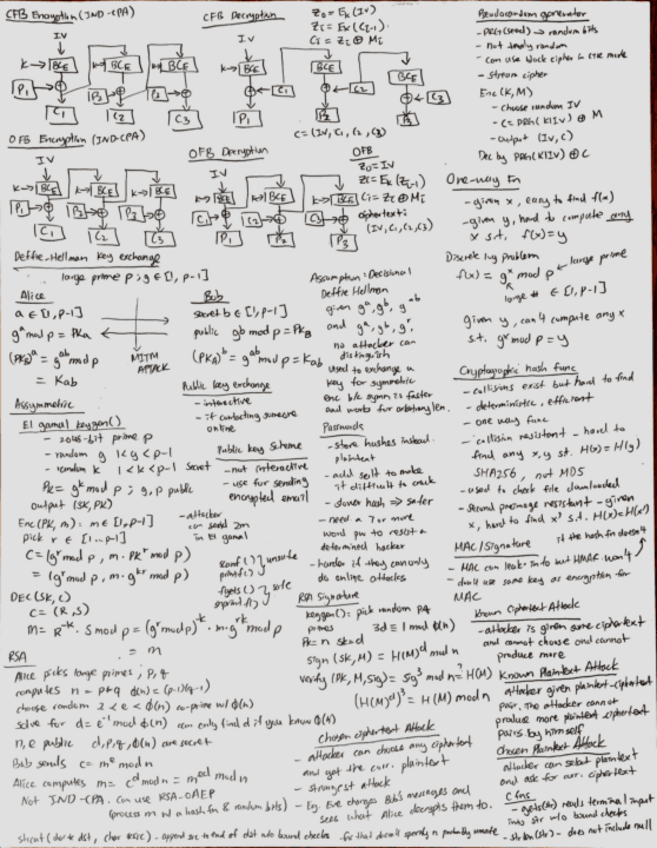 CFB Encryption (IND-CPA)
IV
K → BCE BCE BCE
P1 P2 P3
C1 C2 C3
CFB Decryption
IV
K → BCE BCE BCE
C1 C2 C3
P1 P2 P3
Z0 = Ek(IV)
Zi = Ek(Ci-1)
Ci = Zi ⊕ Mi
C = (IV, C1, C2, C3)
OFB Encryption (IND-CPA)
IV
K → BCE K → BCE K → BCE
P1 P2 P3
C1 C2 C3
OFB Decryption
IV
K → BCE K → BCE K → BCE
C1 C2 C3
P1 P2 P3
OFB
Z0 = IV
Zi = Ek(Zi-1)
Ci = Zi ⊕ Mi
ciphertext:
(IV, C1, C2, C3)
Deffie-Hellman key exchange
large prime p ; g ∈ [1, p-1]
Alice
a ∈ [1, p-1]
g^a mod p = PKa
(PKB)^a = g^ab mod p
= Kab
MITM
ATTACK
Bob
secret b ∈ [1, p-1]
public g^b mod p = PKB
(PKA)^b = g^ab mod p = Kab
Public key exchange
- interactive
- if contacting someone
online
Assumption: Decisional
Deffie Hellman
given g^a, g^b, g^ab
and g^a, g^b, g^r,
no attacker can
distinguish
used to exchange a
key for symmetric
enc b/c symm is faster
and works for arbitrary len.
Assymmetric
El gamal keygen()
- 2048-bit prime p
- random g 1<g<p-1
- random k 1<k<p-1 secret
PK = g^k mod p ; g, p public
output (SK, PK)
Enc(PK, m): m ∈ [1, p-1]
pick r ∈ [1..p-1]
C = (g^r mod p, m·PK^r mod p)
= (g^r mod p, m·g^kr mod p)
DEC(SK, C)
C = (R, S)
m = R^-k · S mod p = (g^r mod p)^-k · m·g^rk mod p
= m
- attacker
can send 2m
in El gamal
Public key Scheme
- not interactive
- use for sending
encrypted email
scanf() } unsafe
printf()
fgets() } safe
snprintf()
Passwords
- store hashes instead.
plaintext
- add salt to make
it difficult to crack
- slower hash ⇒ safer
- need a 7 or more
word pw to resist a
determined hacker
- harder if they can only
do online attacks
RSA Signature
keygen(): pick random p,q
primes 3d ≡ 1 mod ϕ(n)
PK = n SK = d
Sign(SK, M) = H(M)^d mod n
verify(PK, M, Sig) = Sig^3 mod n =? H(M)
(H(M)^d)^3 = H(M) mod n
RSA
Alice picks large primes, p, q
computes n = p*q ϕ(n) = (p-1)(q-1)
choose random 2<e<ϕ(n) co-prime w/ ϕ(n)
solve for d = e^-1 mod ϕ(n) can only find d if you know ϕ(n)
n, e public d, p, q, ϕ(n) are secret
Bob sends c = m^e mod n
Alice computes m = c^d mod n = m^ed mod n
Not IND-CPA. Can use RSA-OAEP
(process m w/ a hash fn & random bits)
Chosen ciphertext Attack
- attacker can choose any ciphertext
and get the corr. plaintext
- strongest attack
- Eg. Eve changes Bob's messages and
sees what Alice decrypts them to.
Pseudorandom generator
- PRG(seed) → random bits
- not truly random
- can use block cipher in CTR mode
- stream cipher
Enc(K, M)
- choose random IV
- C = PRG(K||IV) ⊕ M
- output (IV, C)
Dec by PRG(K||IV) ⊕ C
One-way Fn
- given x, easy to find f(x)
- given y, hard to compute any
x s.t. f(x) = y
Discrete log problem
f(x) = g^x mod p ← large prime
large # ∈ [1, p-1]
given y, can't compute any x
s.t. g^x mod p = y
Cryptographic hash func
- collisions exist but hard to find
- deterministic, efficient
- one way func
- collision resistant - hard to
find any x, y st. H(x) = H(y)
SHA256, not MD5
- used to check file downloaded
- second preimage resistant - given
x, hard to find x' s.t. H(x) = H(x')
MAC/Signature if the hash fn doesn't
- MAC can leak info but HMAC won't
- don't use same key as encryption for
MAC
Known Ciphertext Attack
- attacker is given some ciphertext
and cannot choose and cannot
produce more
Known Plaintext Attack
attacker given plaintext-ciphertext
pair. The attacker cannot
produce more plaintext ciphertext
pairs by himself
Chosen Plaintext Attack
attacker can select plaintext
and ask for corr. ciphertext
C fns
- gets(str) reads terminal input
into str w/o bound checks
- strlen(str) - does not include null
strcat(char* dst, char* src) - append src to end of dst w/o bound checks